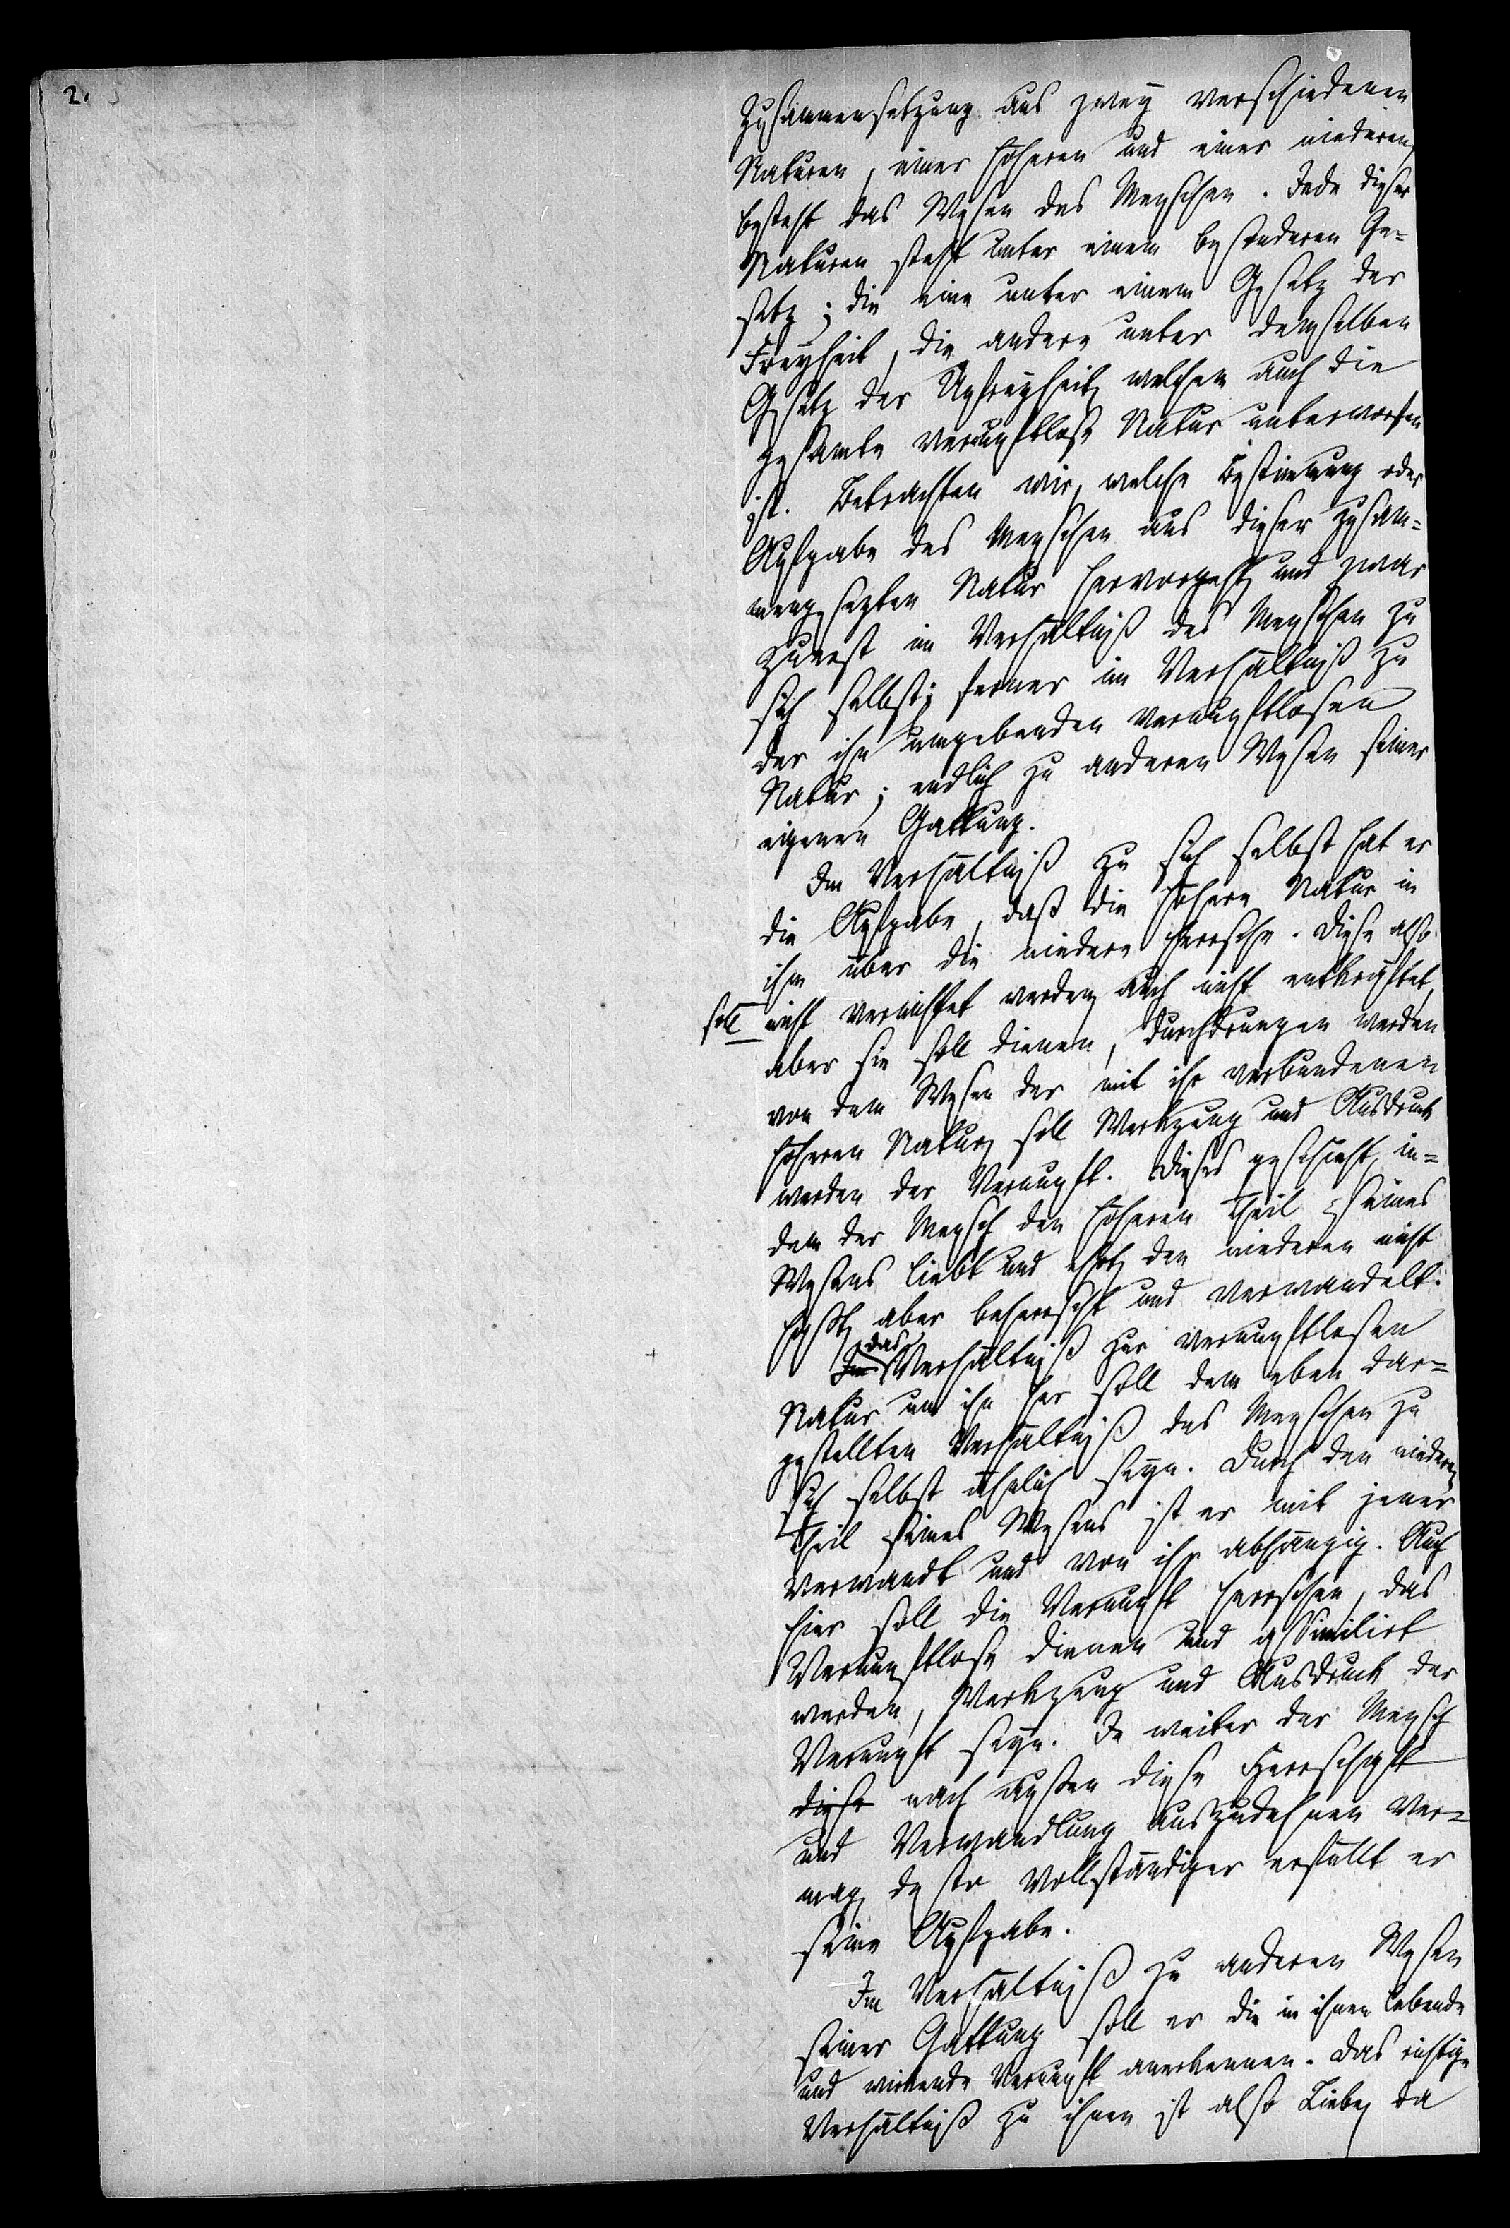 2.
Zusammensetzung aus zwey verschiedenen
Naturen, einer höheren und einer niederen,
besteht das Wesen des Menschen. Jede dieser
Naturen steht unter einem besonderen Ge=
setz; die eine unter einem Gesetz der
Freyheit, die andere unter demselben
Gesetz der Unfreyheit, welchem auch die
gesamte vernunftlose Natur unterworfen
ist. Betrachten wir, welche Bestimung oder
Aufgabe des Menschen aus dieser zusam=
mengesezten Natur hervorgeht, und zwar
zuerst im Verhältniß des Menschen zu
sich selbst; ferner im Verhältniß zu
der ihn umgebenden vernunftlosen
Natur; endlich zu anderen Wesen seiner
eigenen Gattung.
Im Verhältniß zu sich selbst hat er
die Aufgabe, daß die höhere Natur in
ihm über die niedere herrsche. Diese also
soll nicht vernichtet werden, auch nicht entkräftet,
aber sie soll dienen, durchdrungen werden
von dem Wesen der mit ihr verbundenen
höheren Natur, soll Werkzeug und Ausdruck
werden der Vernunft. Dieses geschieht, in=
dem der Mensch den höheren Theil seines
Wesens liebt und ehrt, den niederen nicht
haßt, aber beherrscht und verwandelt.
Im das Verhältniß zur vernunftlosen
Natur um ihn her soll dem eben dar=
gestellten Verhältniß des Menschen zu
sich selbst ähnlich seyn. Durch den niederen
Theil seines Wesens ist er mit jener
verwandt und von ihr abhängig. Auch
hier soll die Vernunft herrschen, das
Vernunftlose dienen und assimilirt
werden, Werkzeug und Ausdruck der
Vernunft seyn. Je weiter der Mensch
diese nach außen diese Herrschaft
und Verwandlung auszudehnen ver=
mag, desto vollständiger erfüllt er
seine Aufgabe.
Im Verhältniß zu anderen Wesen
seiner Gattung soll er die in ihnen lebende
und wirkende Vernunft anerkennen. Das richtige
Verhältniß zu ihnen ist also Liebe, da